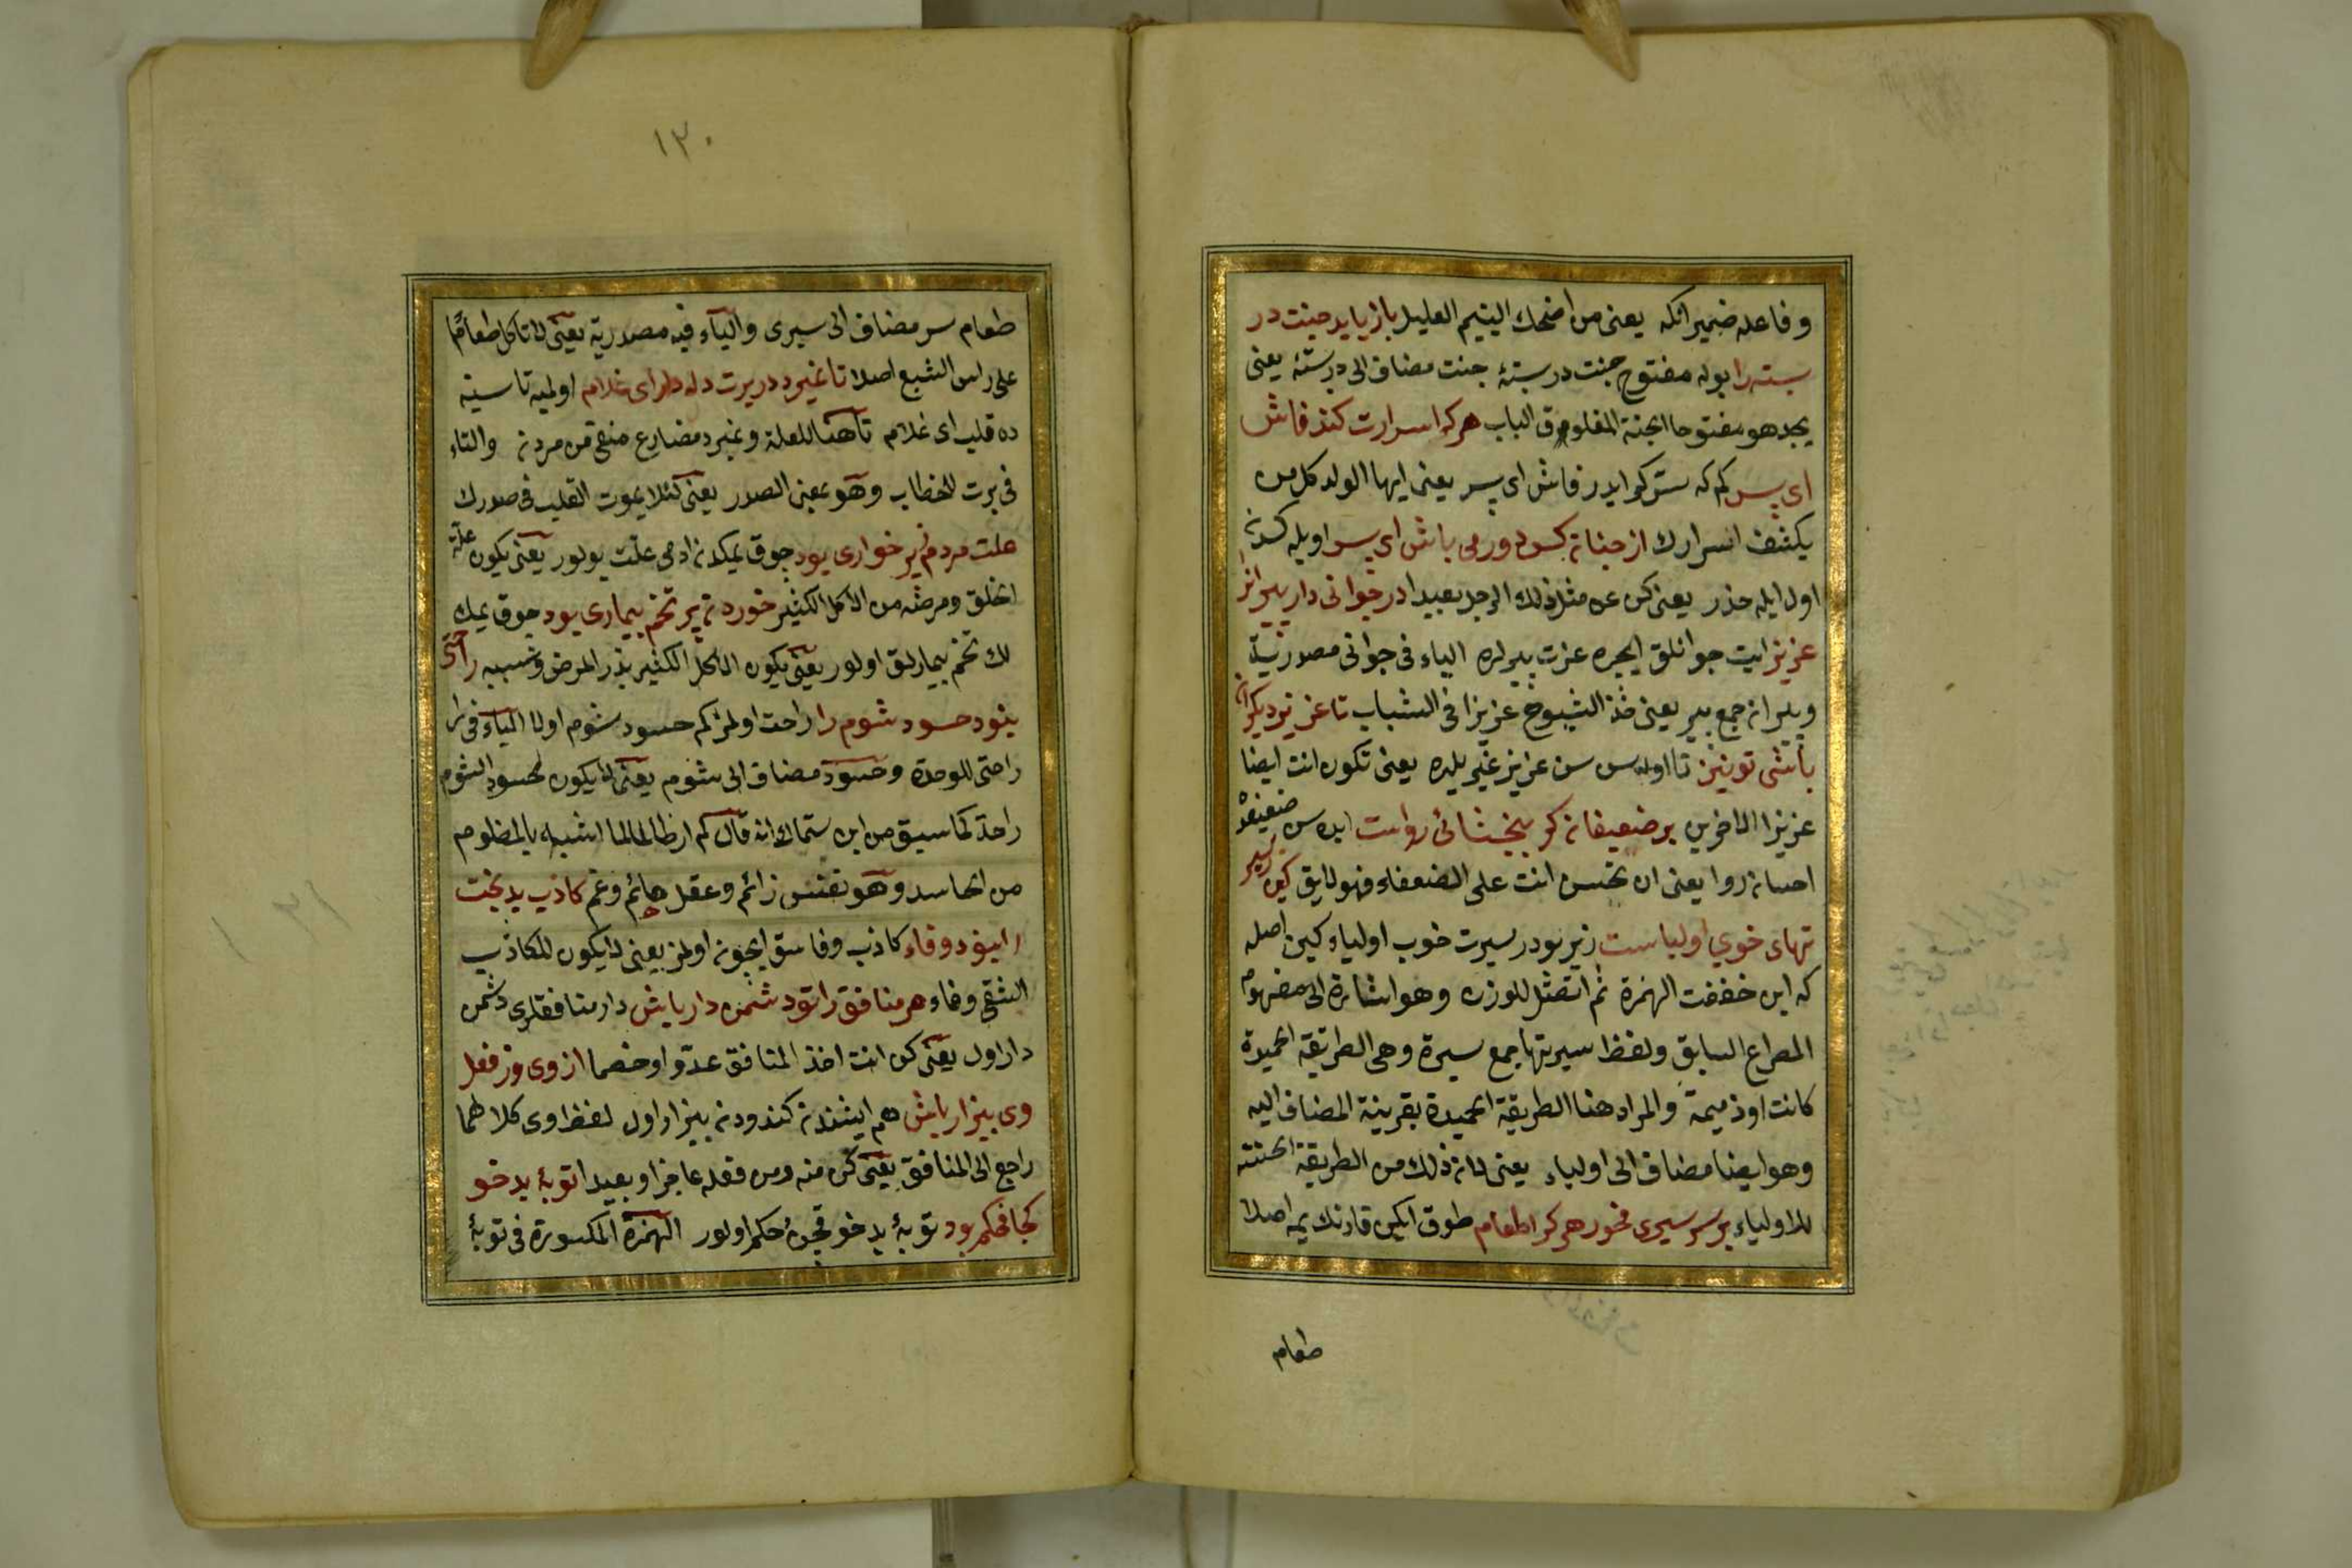 وفاعله ضمير انكه يعنى من اضحك اليتيم العليل باز يابد جنت در
بسته را بوله مفتوح جنت در بستهٔ جنت مضاف الى در بستهٔ يعنى
يجد هو مفتوحا الجنة المغلوق الباب هركه اسرارت كند فاش
اى پسر كم كه سترك ايدر فاش اى پسر يعنى ايها الولد كل من
يكشف اسرارك از چنان كس دور مى باش اى پسر اويله كسدن
اول ايله حذر يعنى كن عن مثل ذلك الرجل بعيدا در جوانى دار پيرانرا
عزيز ايت جوانلق ايچره عزت پيرلره الياء فى جوانى مصدرية
وپيران جمع پير يعنى خذ الشيوخ عزيزا فى الشباب تا عزيز ديكران
باشى تو نيز تا اوله سن سن عزيز غير يلره يعنى تكون انت ايضا
عزيزا الاخرين بر ضعيفان كر ببخشائى رواست ايده سن ضعيفه
احسان روا يعنى ان تحسن انت على الضعفاء فهو لايق كين سير
تهاى خوب اولياست زير بودر سيرت خوب اولياء كين اصله
كه اين خففت الهمزة ثم اتصل للوزن وهو اشارة الى مفهوم
المصراع السابق ولفظ سيرتها جمع سيرة وهى الطريقة الحميدة
كانت اوذميمة والمراد هنا الطريقة الحميدة بقرينة المضاف اليه
وهو ايضا مضاف الى اولياء يعنى لان ذلك من الطريقة الحسنة
للاولياء بر سر سيرى مخور هركز طعام طوق ايكن قارنك يمه اصلا
طعام
١٣٠
طعام سر مضاف الى سيرى والياء فيه مصدرية يعنى لا تاكل طعاما
على راس الشبع اصلا تا نميرد در برت دل اى غلام اولميه تا سينه
ده قلب اى غلام تا هنا للعلة ونميرد مضارع منفى من مردن والتاء
فى برت للخطاب وهو بمعنى الصدر يعنى كئلا يموت القلب فى صدرك
علت مردم ز پر خوارى بود چوق يمكدن ادمى علت بولور يعنى يكون علة
الخلق ومرضه من الاكل الكثير خوردن پر تخم بيمارى بود چوق يمك
لك تخم بيمارلق اولور يعنى يكون الاكل الكثير بذر المرض وسببه راحتى
نبود حسود شوم را راحت اولمز كم حسود شوم اولا الياء فى
راحتى للوحدة وحسود مضاف الى شوم يعنى لا يكون لحسود الشوم
راحة كما سبق من ابن سماك انه قال لم ار ظالما اشبه بالمظلوم
من الحاسد وهو نفس زائم وعقل هائم وغم كاذب بد بخت
را نبود وفاء كاذب وفاسق ايچون اولمز يعنى لا يكون للكاذب
الشقى وفاء هر منافق را تو دشمن دار باش دار منافقلرى دشمن
دار اول يعنى كن انت اخذ المنافق عدوّا وخصما از وى وز فعل
وى بيزار باش هم ايشندن كندودن بيزار اول لفظ وى كلاهما
راجع الى المنافق يعنى كن منه ومن فعله عاجزا وبعيدا توبهٔ بد خو
كجا محكم بود توبهٔ بد خو قچن محكم اولور الهمزة المكسورة فى توبهٔ